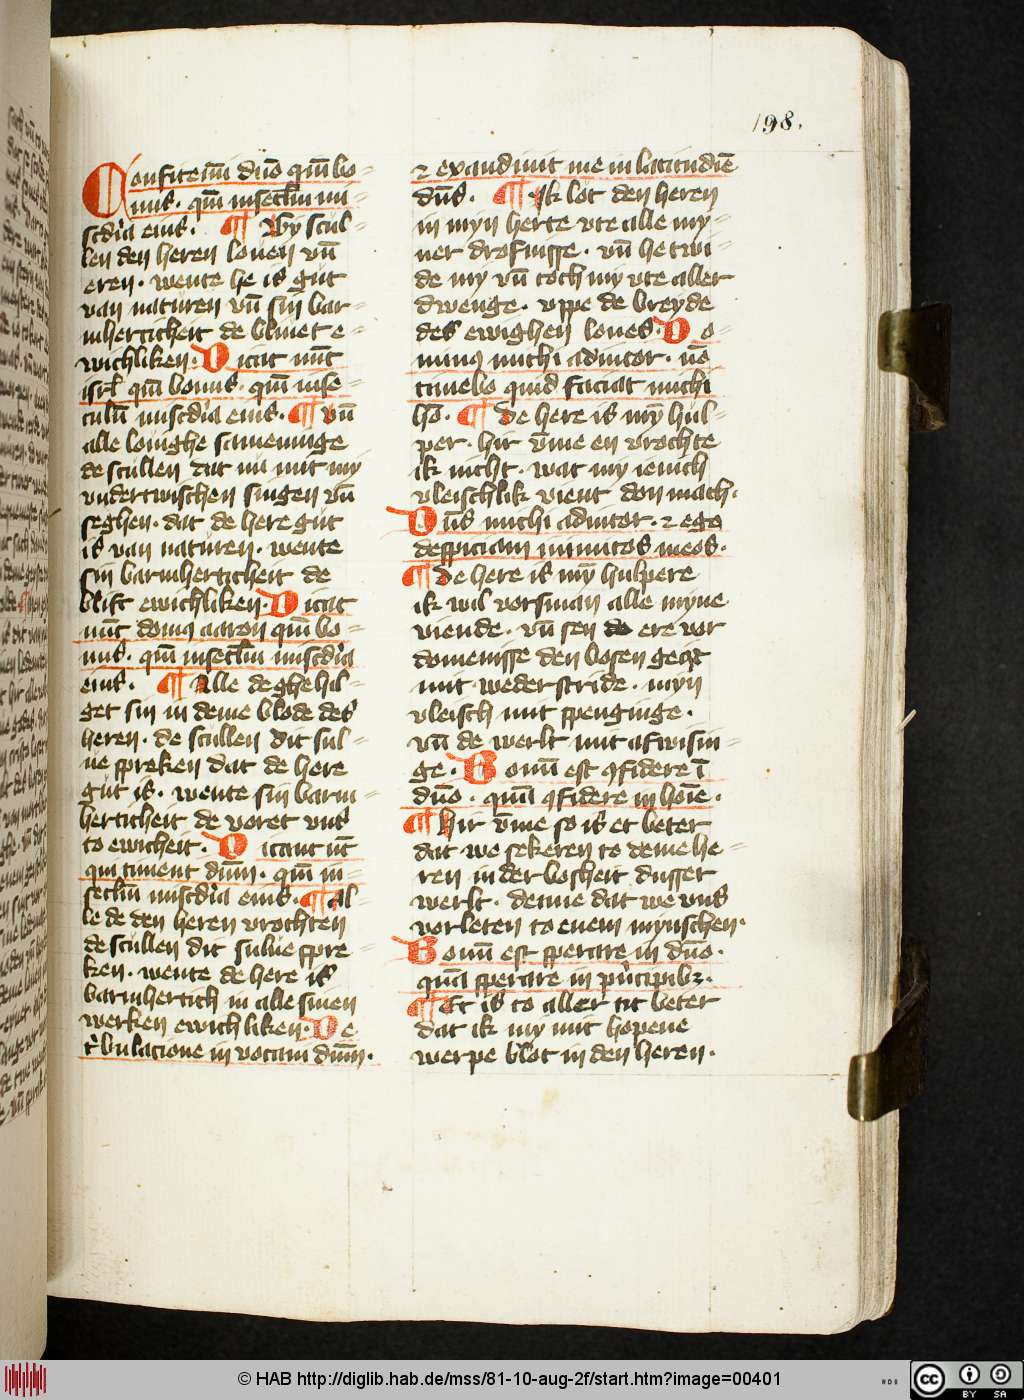 198.
Confitemī dn̄o qm̄ bo=
nus. qm̄ insecl̄m mi=
scdīa eius. ¶ Wy scul=
len den heren louen vn̄
eren. wente he is gut
van naturen vn̄ sin bar=
mherticheit de bliuet e=
wichliken. Dicat nūc
isrl̄ qm̄ bonus. qm̄ inse=
culū miscdīa eius. ¶ vn̄
alle louighe sameninge
de scullen dat nu mit my
vndertwischen singen vn̄
seghen. dat de here gut
is van naturen. wente
sin barmherticheit de
blift ewichliken. Dicat
nūc domꝫ aaron qm̄ bo=
nus. qm̄ insecl̄m miscdīa
eius. ¶ Alle de ghehil=
get sin in deme blode des
heren. de scullen dit sul=
ue spreken dat de here
gut is. wente sin barm=
herticheit de voret vns
to ewicheit. Dicant nūc
qui timent dn̄m. qm̄ in=
secl̄m miscdīa eius. ¶ Al=
le de den heren vrochten
de scullen dit sulue spre=
ken. wente de here is
barmhertich in alle sinen
werken ewichliken. De
tͥbulacione in vocaui dn̄m.
⁊ exaudiuit me in latitudīe
dn̄s. ¶ Ik lot den heren
in myn herte vte alle my=
ner drofnisse. vn̄ he twi=
de my vn̄ toch my vte aller
dwenge. vppe de breyde
des ewighen loues. Do=
minꝫ michi adiutor. nō
timebo quid faciat michi
hō. ¶ De here is mȳ hul=
per. hir v̄me en vrochte
ik nicht. wat my ienich
vleischlik vient don mach.
Dn̄s michi adiutor. ⁊ ego
despiciam inimicos meos.
¶ De here is mȳ hulpere
ik wil vorsman alle myne
viende. vn̄ sen ere vor
domenisse den bosen geist
mit wederstride. myn
vleisch mit speginge.
vn̄ de werlt mit afwisin=
ge. Bonū est ꝯfidere ī
dn̄o. quā ꝯfidere in hoīe.
¶ Hir v̄me so is et beter
dat we sekeren to deme he=
ren in der bosheit dusser
werlt. denne dat we vns
vorleten to enem mynschen.
Bonū est sperare in dn̄o.
quā sperare in pͥncipibꝫ.
¶ Et is to aller tit beter
dat ik my mit hopene
werpe blot in den heren.
© HAB http://diglib.hab.de/mss/81-10-aug-2f/start.htm?image=00401
cc BY SA